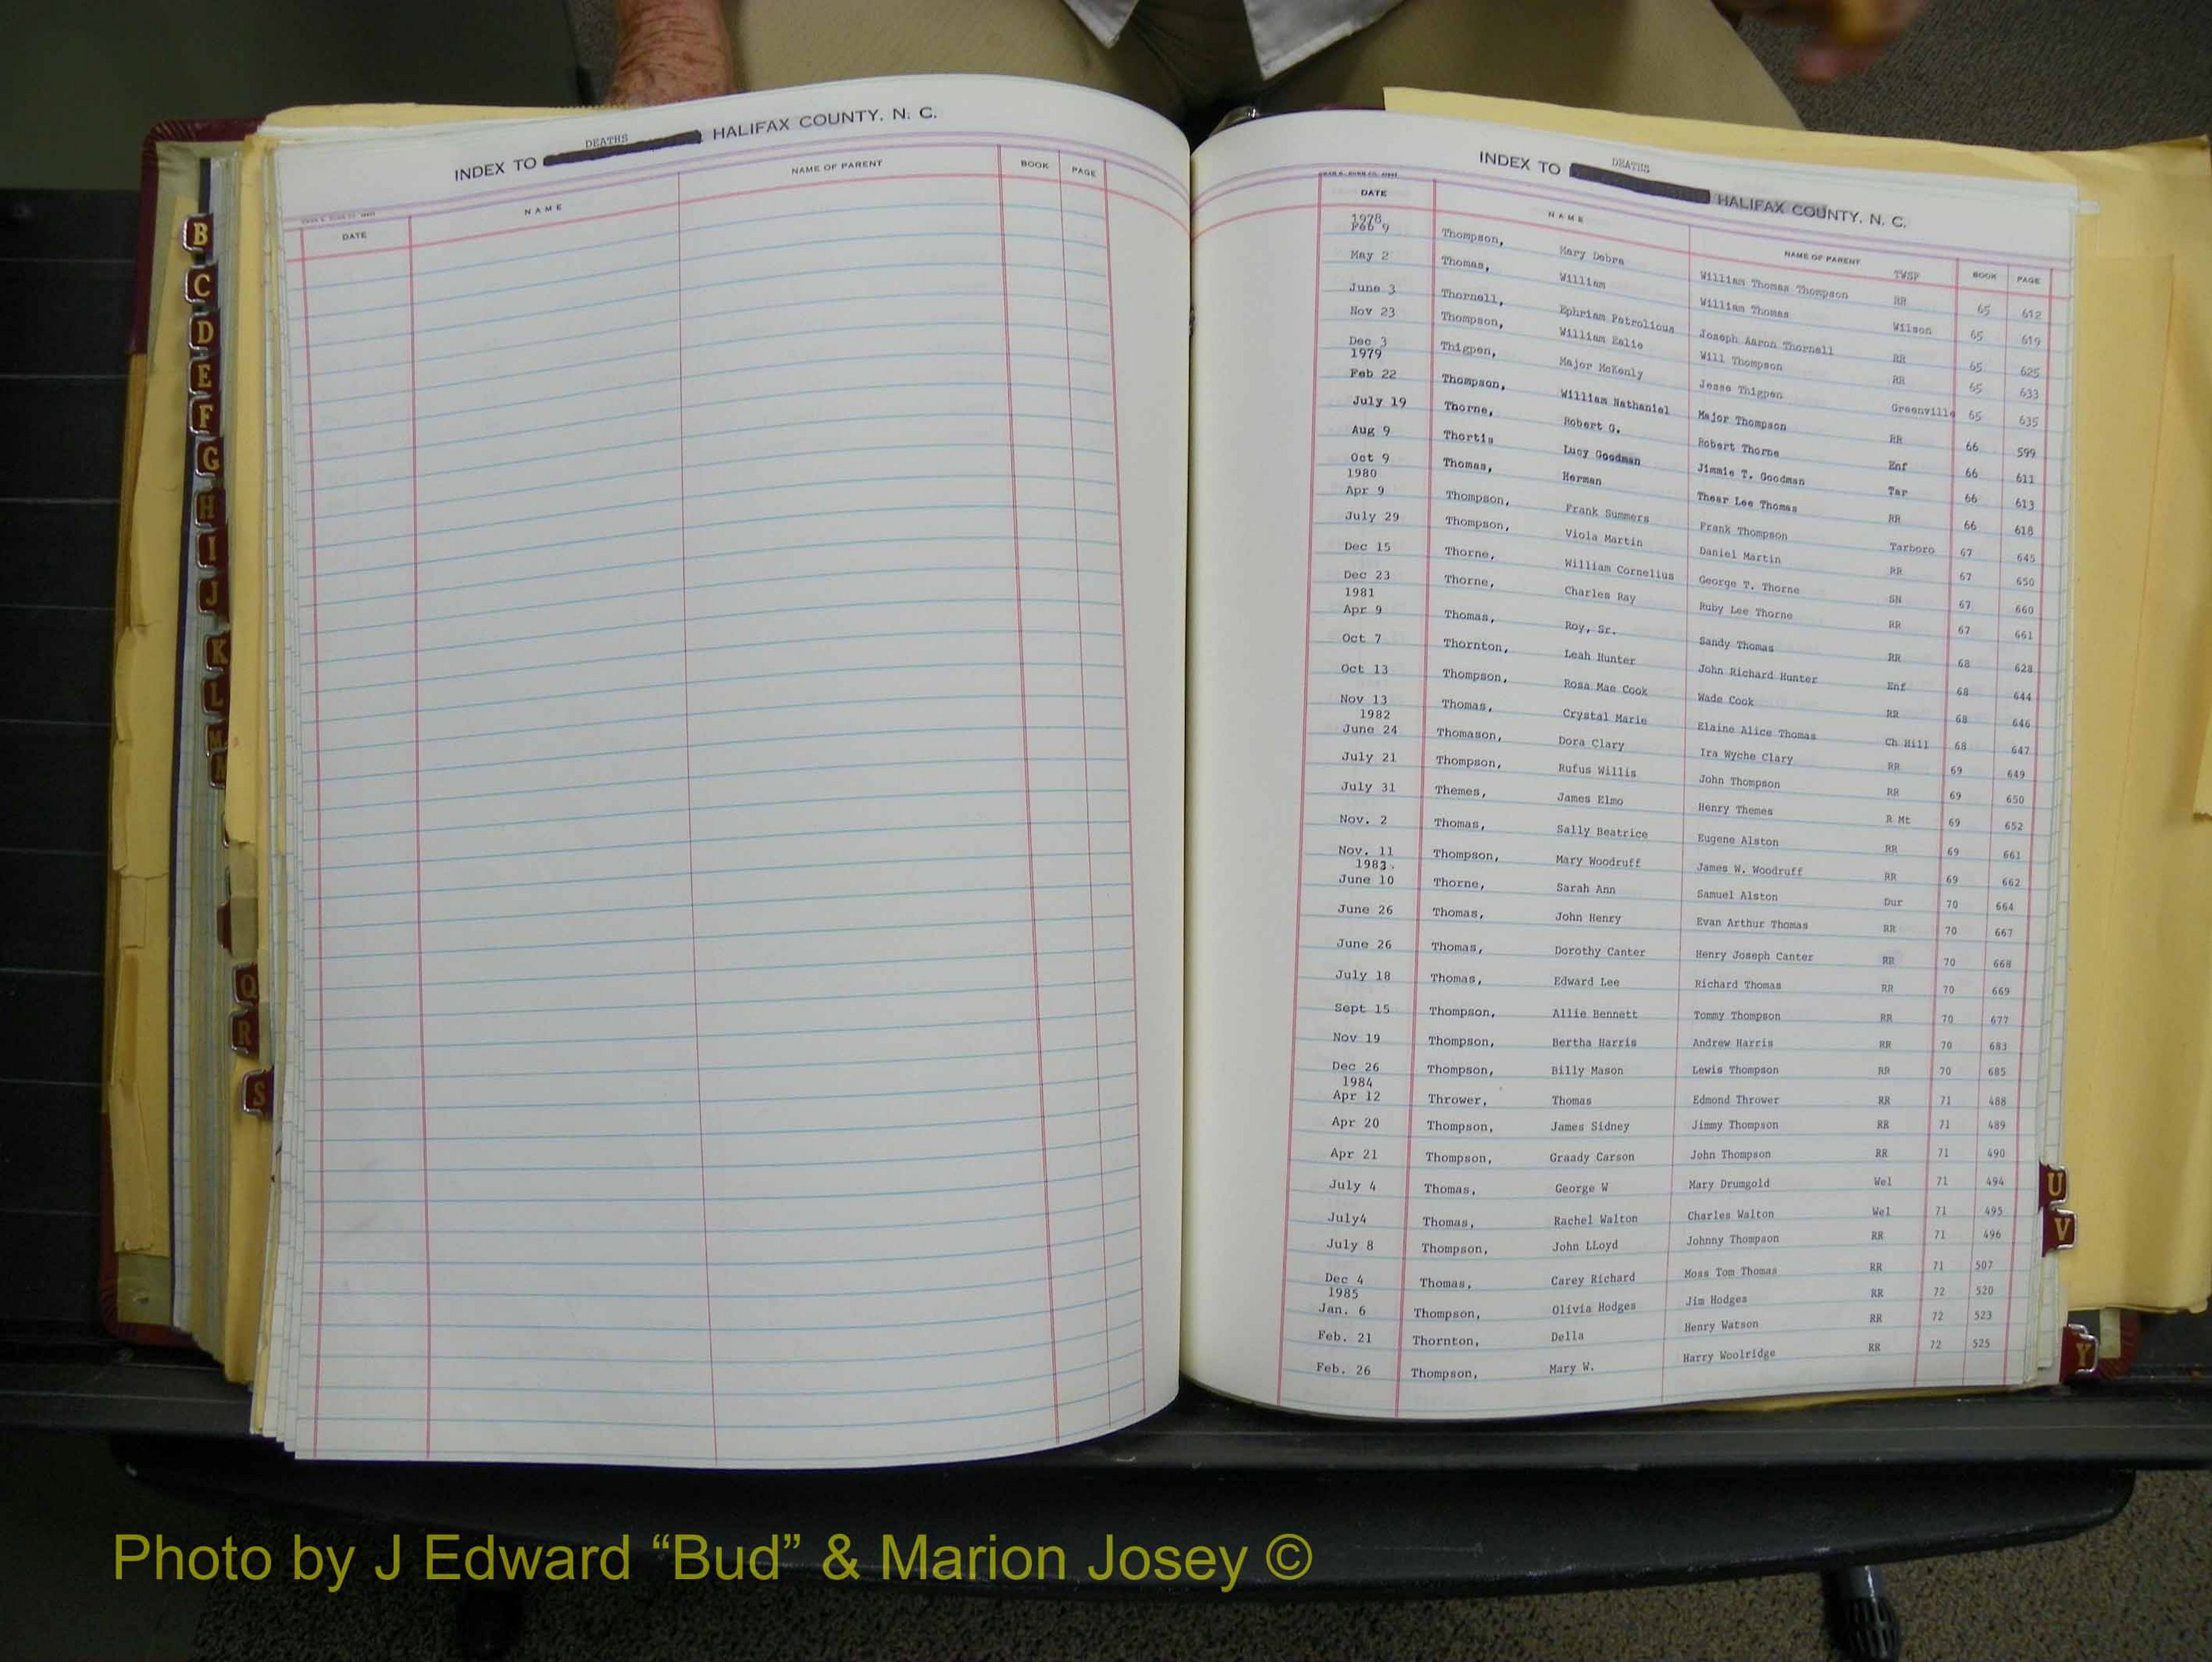 INDEX TO DEATHS HALIFAX COUNTY, N. C.
DATE NAME NAME OF PARENT BOOK PAGE
B
C
D
E
F
G
H
I
J
K
L
M
Q
R
S
INDEX TO DEATHS HALIFAX COUNTY, N. C.
DATE NAME NAME OF PARENT TWSP BOOK PAGE
1978
Feb 9 Thompson, Mary Debra William Thomas Thompson RR 65 612
May 2 Thomas, William William Thomas Wilson 65 619
June 3 Thornell, Ephriam Petrolious Joseph Aaron Thornell RR 65 625
Nov 23 Thompson, William Ealie Will Thompson RR 65 633
Dec 3 Thigpen, Major McKenly Jesse Thigpen Greenville 65 635
1979
Feb 22 Thompson, William Nathaniel Major Thompson RR 66 599
July 19 Thorne, Robert G. Robert Thorne Enf 66 611
Aug 9 Thortis Lucy Goodman Jimmie T. Goodman Tar 66 613
Oct 9 Thomas, Herman Thear Lee Thomas RR 66 618
1980
Apr 9 Thompson, Frank Summers Frank Thompson Tarboro 67 645
July 29 Thompson, Viola Martin Daniel Martin RR 67 650
Dec 15 Thorne, William Cornelius George T. Thorne SN 67 660
Dec 23 Thorne, Charles Ray Ruby Lee Thorne RR 67 661
1981
Apr 9 Thomas, Roy, Sr. Sandy Thomas RR 68 628
Oct 7 Thornton, Leah Hunter John Richard Hunter Enf 68 644
Oct 13 Thompson, Rosa Mae Cook Wade Cook RR 68 646
Nov 13 Thomas, Crystal Marie Elaine Alice Thomas Ch Hill 68 647
1982
June 24 Thomason, Dora Clary Ira Wyche Clary RR 69 649
July 21 Thompson, Rufus Willis John Thompson RR 69 650
July 31 Themes, James Elmo Henry Themes R Mt 69 652
Nov. 2 Thomas, Sally Beatrice Eugene Alston RR 69 661
Nov. 11 Thompson, Mary Woodruff James W. Woodruff RR 69 662
1983
June 10 Thorne, Sarah Ann Samuel Alston Dur 70 664
June 26 Thomas, John Henry Evan Arthur Thomas RR 70 667
June 26 Thomas, Dorothy Canter Henry Joseph Canter RR 70 668
July 18 Thomas, Edward Lee Richard Thomas RR 70 669
Sept 15 Thompson, Allie Bennett Tommy Thompson RR 70 677
Nov 19 Thompson, Bertha Harris Andrew Harris RR 70 683
Dec 26 Thompson, Billy Mason Lewis Thompson RR 70 685
1984
Apr 12 Thrower, Thomas Edmond Thrower RR 71 488
Apr 20 Thompson, James Sidney Jimmy Thompson RR 71 489
Apr 21 Thompson, Graady Carson John Thompson RR 71 490
July 4 Thomas, George W Mary Drumgold Wel 71 494
July4 Thomas, Rachel Walton Charles Walton Wel 71 495
July 8 Thompson, John LLoyd Johnny Thompson RR 71 496
Dec 4 Thomas, Carey Richard Moss Tom Thomas RR 71 507
1985
Jan. 6 Thompson, Olivia Hodges Jim Hodges RR 72 520
Feb. 21 Thornton, Della Henry Watson RR 72 523
Feb. 26 Thompson, Mary W. Harry Woolridge RR 72 525
U
V
Y
Photo by J Edward “Bud” & Marion Josey ©